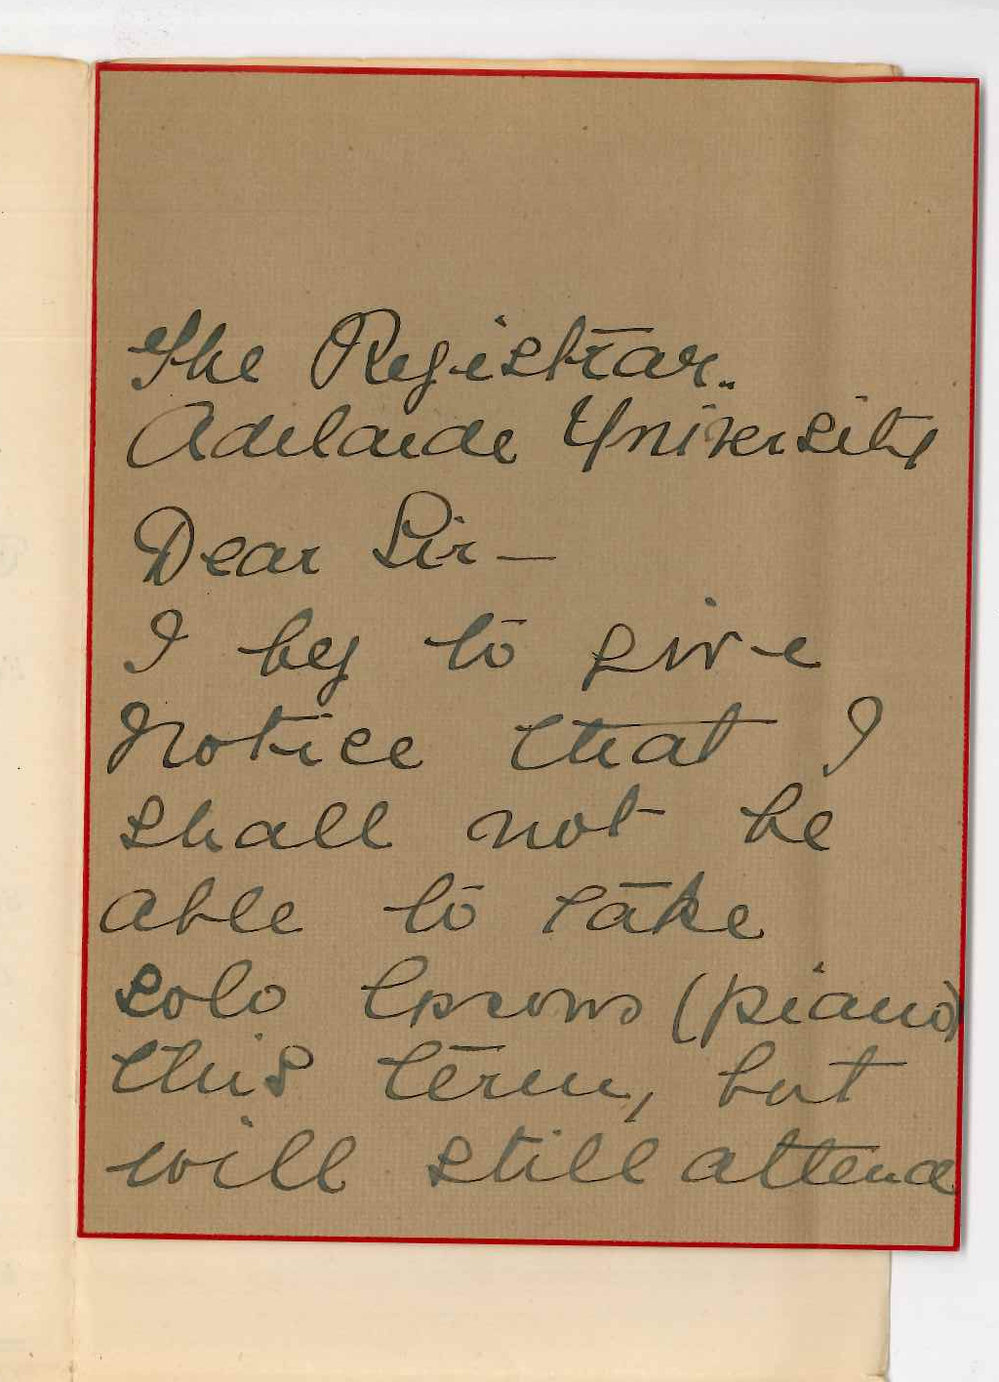 The Registrar..
Adelaide University
Dear Sir —
I beg to give
notice that I
shall not be
able to take
solo lessons (piano)
this term, but
will still attend